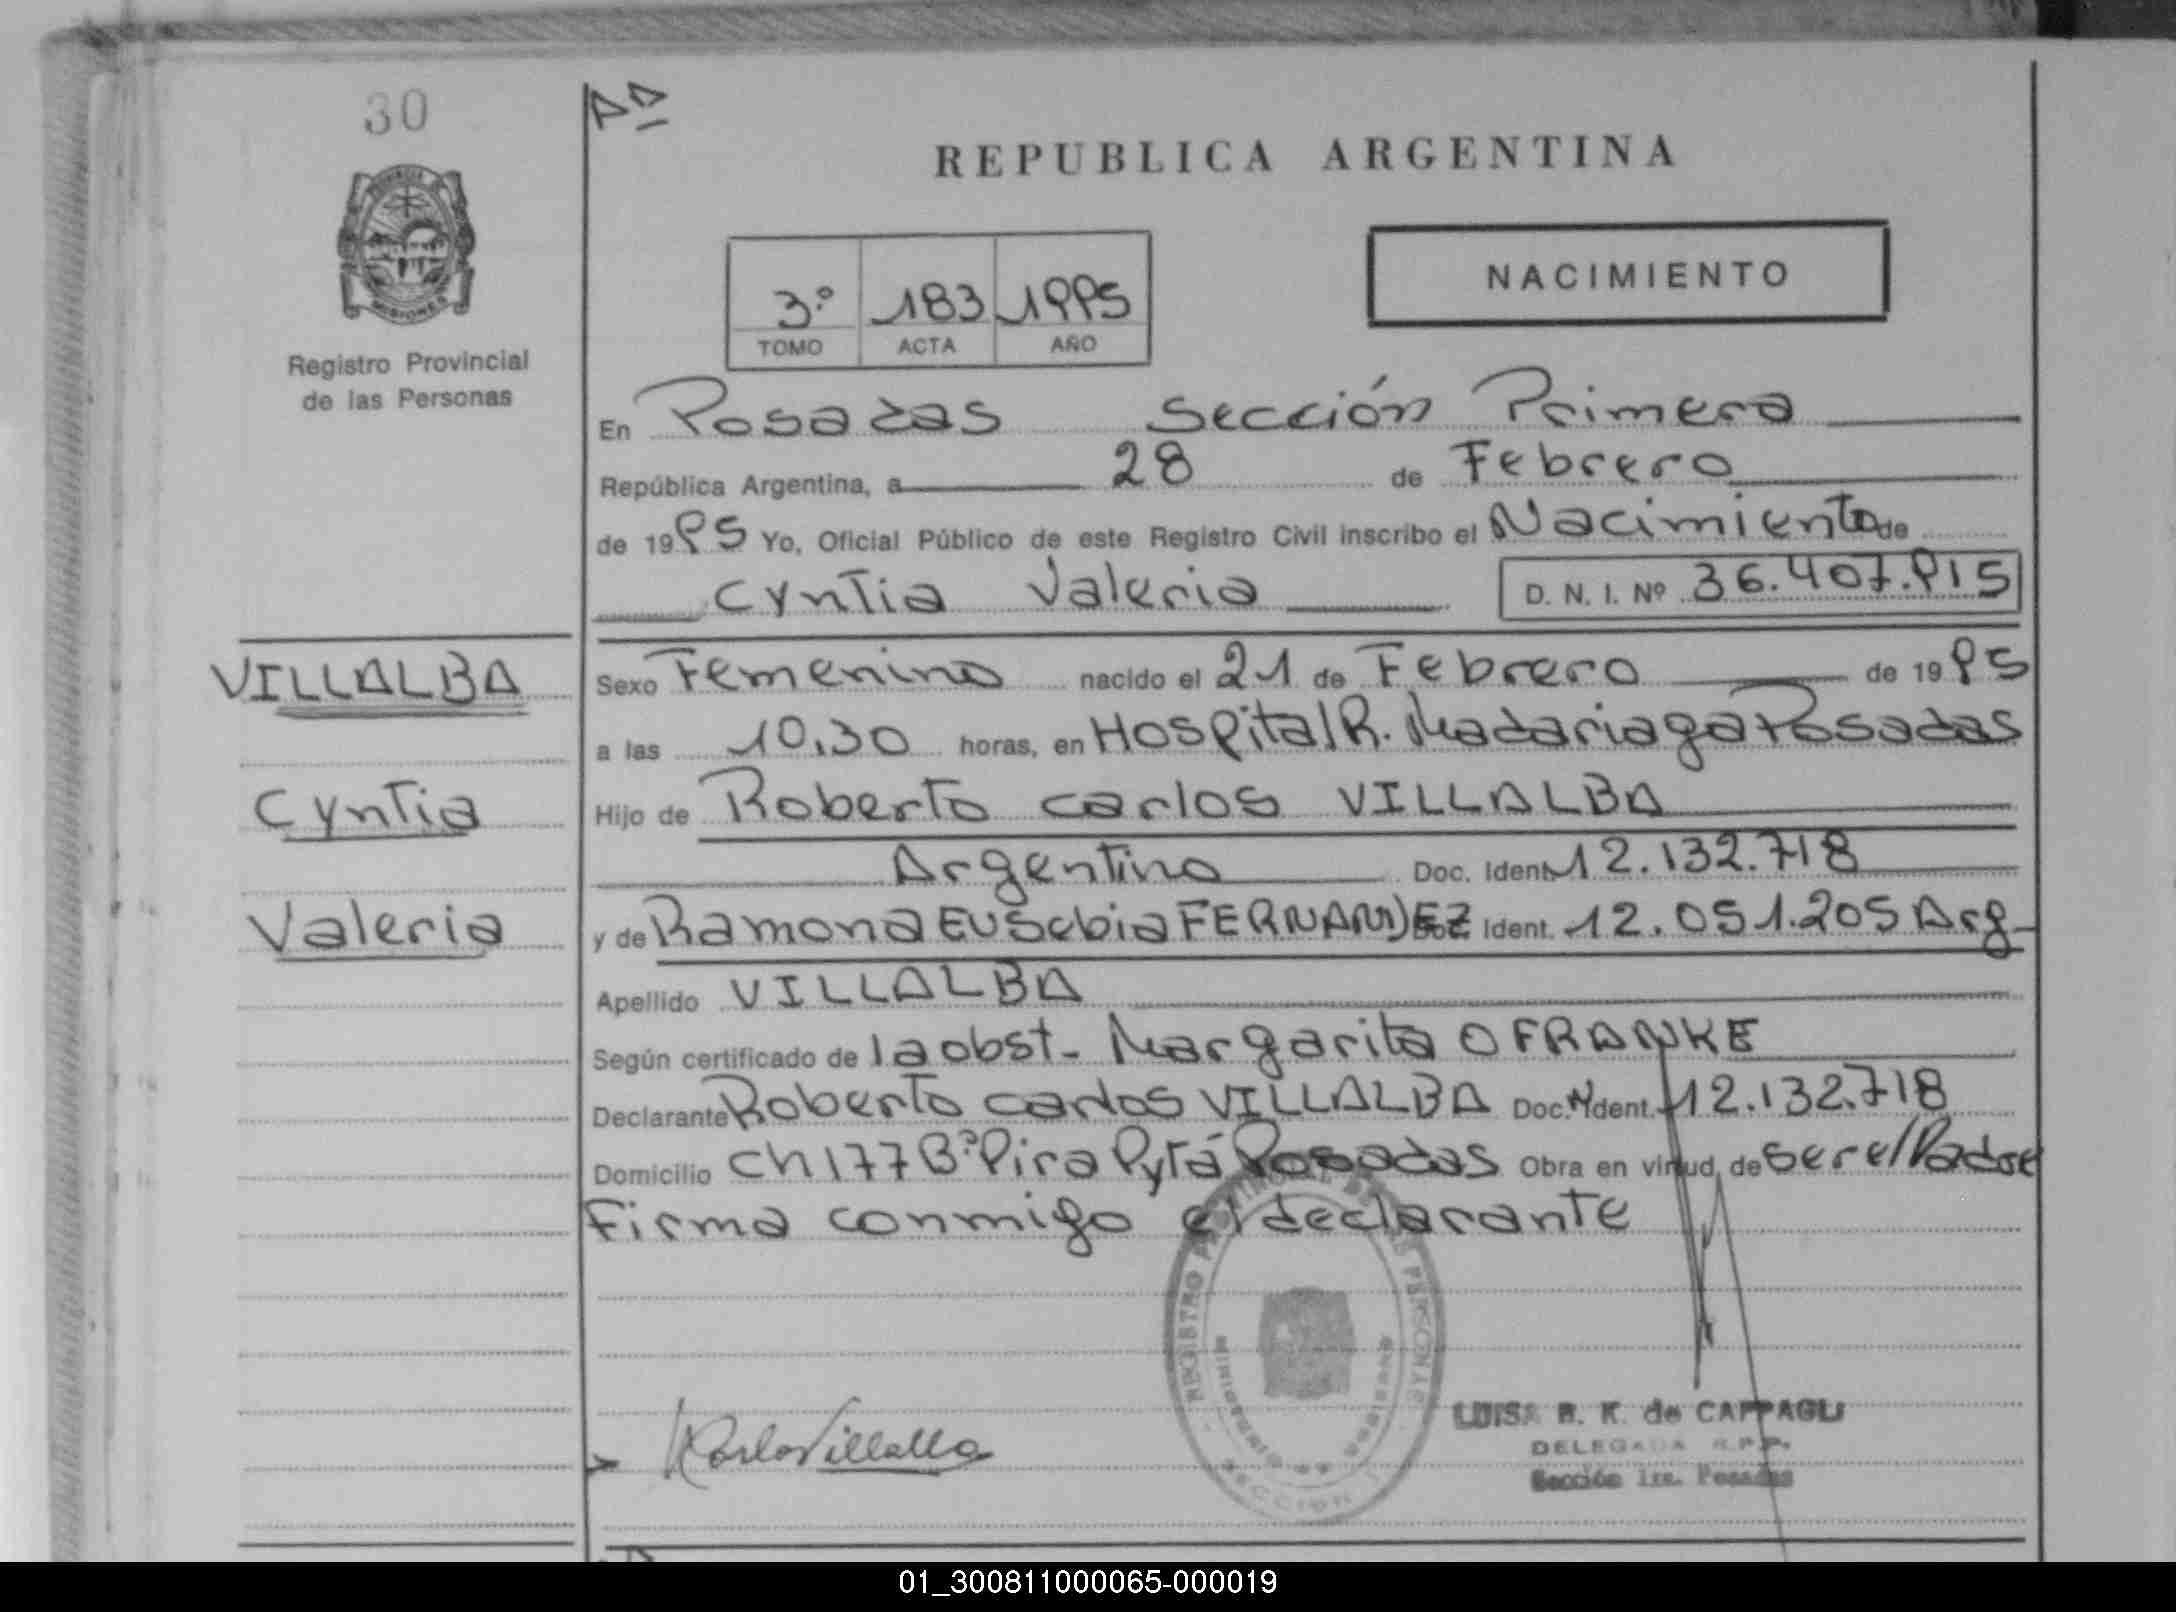 30
REPUBLICA ARGENTINA
MISIONES
Registro Provincial
de las Personas
NACIMIENTO
3º 183 1995
TOMO ACTA AÑO
En Posadas Sección Primera
República Argentina, a 28 de Febrero
de 1995 Yo, Oficial Público de este Registro Civil inscribo el Nacimiento de
Cyntia Valeria D. N. I. Nº 36.407.915
VILLALBA
Cyntia
Valeria
Sexo Femenino nacido el 21 de Febrero de 1995
a las 10,30 horas, en Hospital R. Madariaga Posadas
Hijo de Roberto Carlos VILLALBA
Argentino Doc. Ident. 12.132.718
y de Ramona Eusebia FERNANDEZ Doc. Ident. 12.051.205 Arg-
Apellido VILLALBA
Según certificado de la obst- Margarita O FRANKE
Declarante Roberto Carlos VILLALBA Doc. Ident. 12.132.718
Domicilio Ch 177 Bº Pira Pytá Posadas Obra en virtud de ser el Padre
Firma conmigo el declarante
REGISTRO PROVINCIAL DE LAS PERSONAS
SECCION
Carlos Villalba
LUISA B. K. de CAPPAGLI
DELEGADA R.P.P.
Sección 1ra. Posadas
01_300811000065-000019